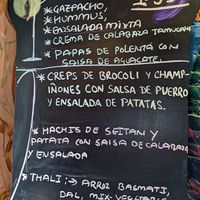 * GAZPACHO,
* HUMMUS,
* ENSALADA MIXTA
* CREMA DE CALABAZA
* PAPAS DE POLENTA CON
SALSA DE AGUACATE.
* CREPS DE BROCOLI Y CHAMP-
IÑONES CON SALSA DE PUERRO
Y ENSALADA DE PATATAS.
* HACHIS DE SEITAN Y
PATATA CON SALSA DE CALABAZA
Y ENSALADA
* THALI ;→ ARROZ BASMATI,
DAL, MIX-VEGETABLE